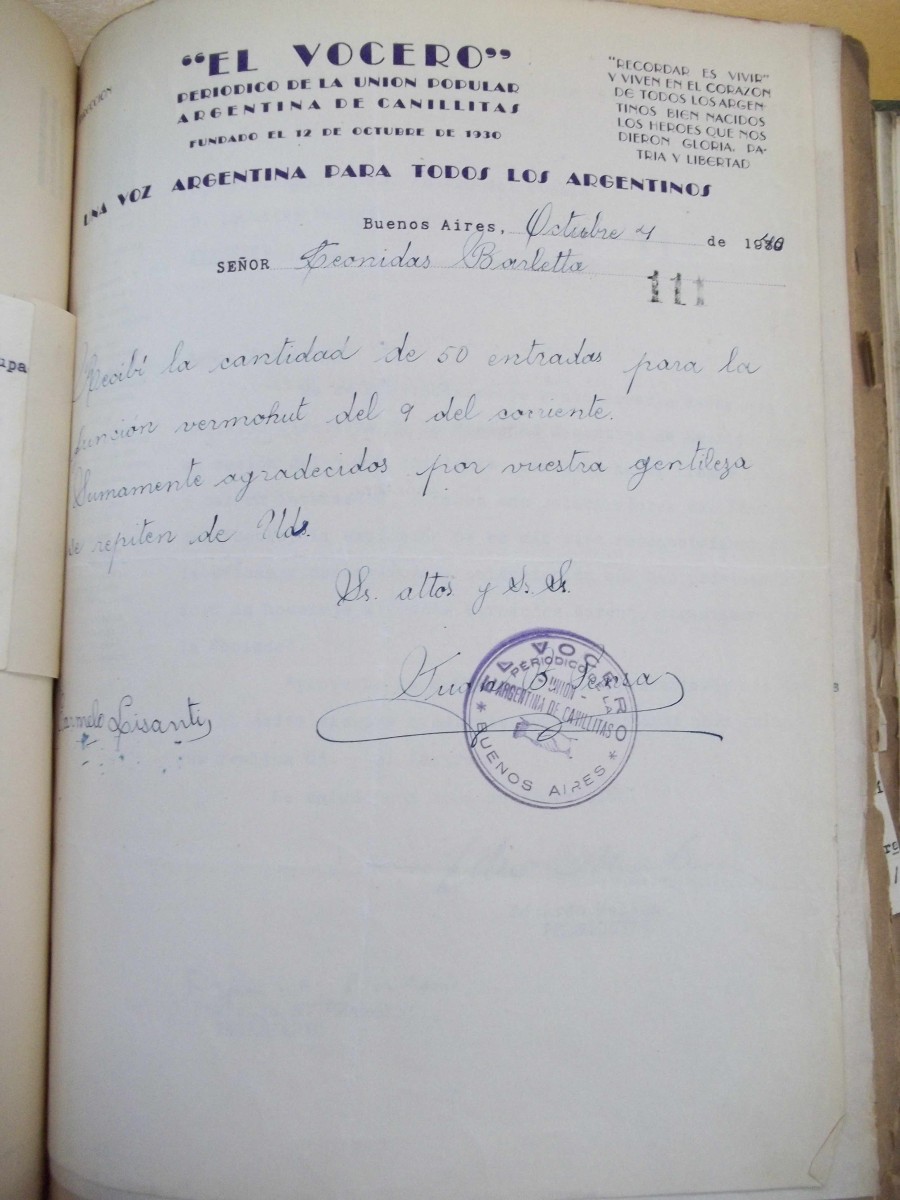 "EL VOCERO"
PERIODICO DE LA UNION POPULAR
ARGENTINA DE CANILLITAS
FUNDADO EL 12 DE OCTUBRE DE 1930
"RECORDAR ES VIVIR"
Y VIVEN EN EL CORAZON
DE TODOS LOS ARGEN-
TINOS BIEN NACIDOS
LOS HEROES QUE NOS
DIERON GLORIA, PA-
TRIA Y LIBERTAD
UNA VOZ ARGENTINA PARA TODOS LOS ARGENTINOS
Buenos Aires, Octubre 4 de 1940
SEÑOR Leonidas Barletta
111
Recibí la cantidad de 50 entradas para la
función vermohut del 9 del corriente.
Sumamente agradecidos por vuestra gentileza
se repiten de Uds.
Ss. attos y S. S.
EL VOCERO
PERIODICO DE LA
UNION
ARGENTINA DE CANILLITAS
* BUENOS AIRES *
Carmelo Lisanti